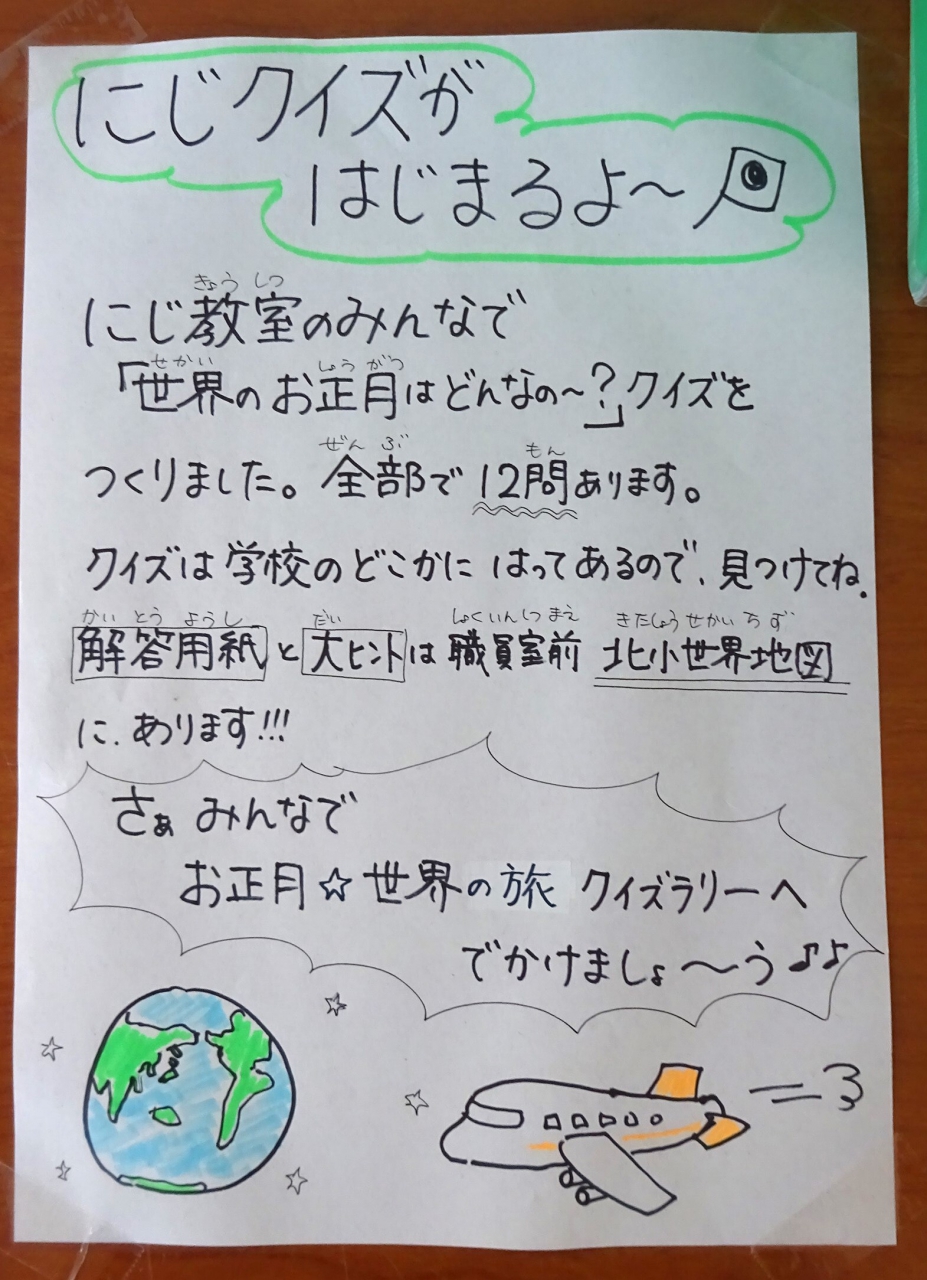 にじクイズが
はじまるよ～
きょうしつ
にじ教室のみんなで
せかい しょうがつ
「世界のお正月はどんなの～？」クイズを
ぜんぶ もん
つくりました。全部で12問あります。
クイズは学校のどこかにはってあるので、見つけてね。
かいとうようし だい しょくいんしつまえ きたしょうせかいちず
解答用紙と大ヒントは職員室前 北小世界地図
に、あります!!!
さぁ みんなで
お正月☆世界の旅 クイズラリーへ
でかけましょ～う♪♪